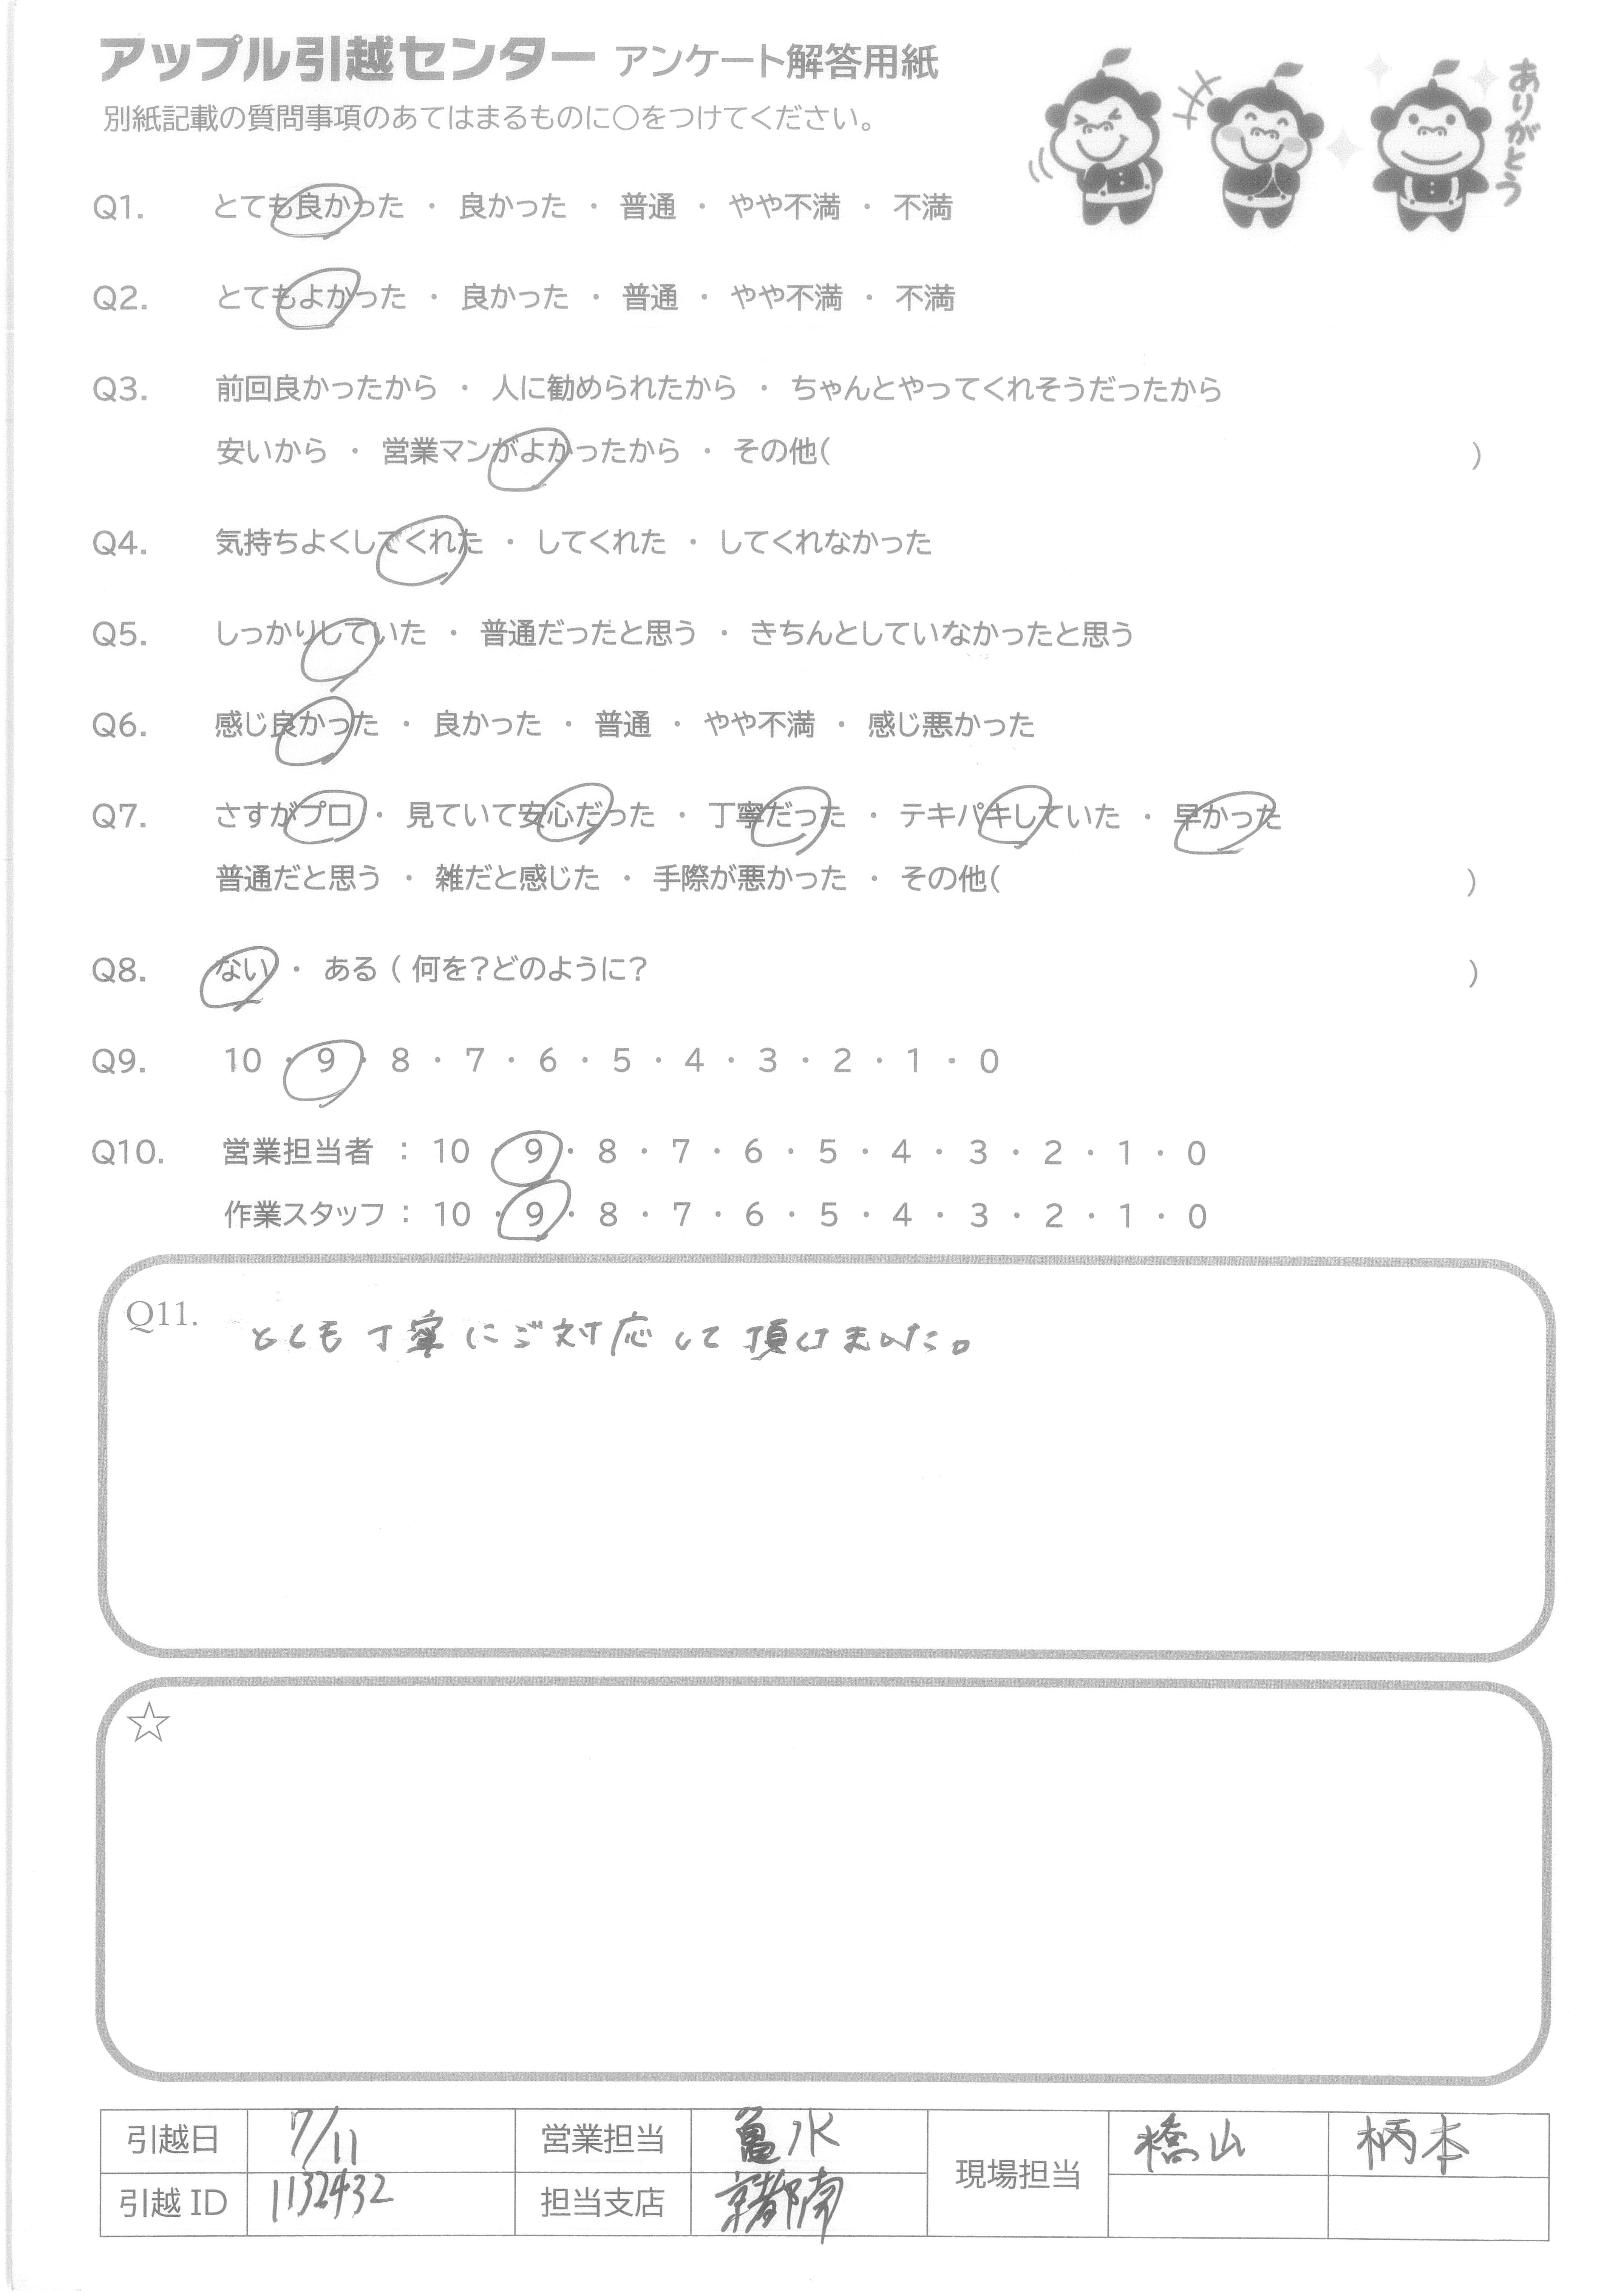 アップル引越センター アンケート解答用紙
ありがとう
別紙記載の質問事項のあてはまるものに○をつけてください。
Q1. とても良かった ・ 良かった ・ 普通 ・ やや不満 ・ 不満
Q2. とてもよかった ・ 良かった ・ 普通 ・ やや不満 ・ 不満
Q3. 前回良かったから ・ 人に勧められたから ・ ちゃんとやってくれそうだったから
安いから ・ 営業マンがよかったから ・ その他( )
Q4. 気持ちよくしてくれた ・ してくれた ・ してくれなかった
Q5. しっかりしていた ・ 普通だったと思う ・ きちんとしていなかったと思う
Q6. 感じ良かった ・ 良かった ・ 普通 ・ やや不満 ・ 感じ悪かった
Q7. さすがプロ ・ 見ていて安心だった ・ 丁寧だった ・ テキパキしていた ・ 早かった
普通だと思う ・ 雑だと感じた ・ 手際が悪かった ・ その他( )
Q8. ない ・ ある ( 何を?どのように? )
Q9. 10 ・ 9 ・ 8 ・ 7 ・ 6 ・ 5 ・ 4 ・ 3 ・ 2 ・ 1 ・ 0
Q10. 営業担当者 : 10 ・ 9 ・ 8 ・ 7 ・ 6 ・ 5 ・ 4 ・ 3 ・ 2 ・ 1 ・ 0
作業スタッフ : 10 ・ 9 ・ 8 ・ 7 ・ 6 ・ 5 ・ 4 ・ 3 ・ 2 ・ 1 ・ 0
Q11. とても丁寧にご対応して頂けました。
☆
引越日 7/11 営業担当 亀水 現場担当 橋山 柄本
引越ID 1132432 担当支店 京都南